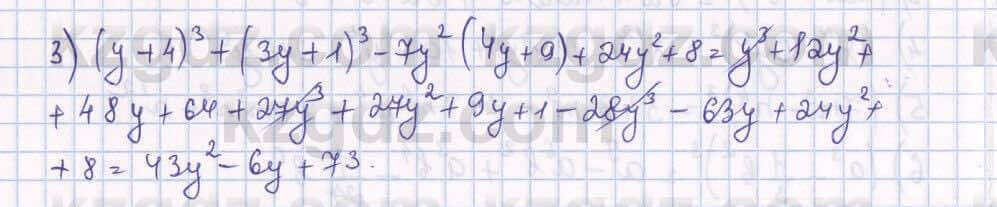 3) (y+4)³+(3y+1)³-7y²(4y+9)+24y²+8=y³+12y²+
+48y+64+27y³+27y²+9y+1-28y³-63y+24y²+
+8=43y²-6y+73.